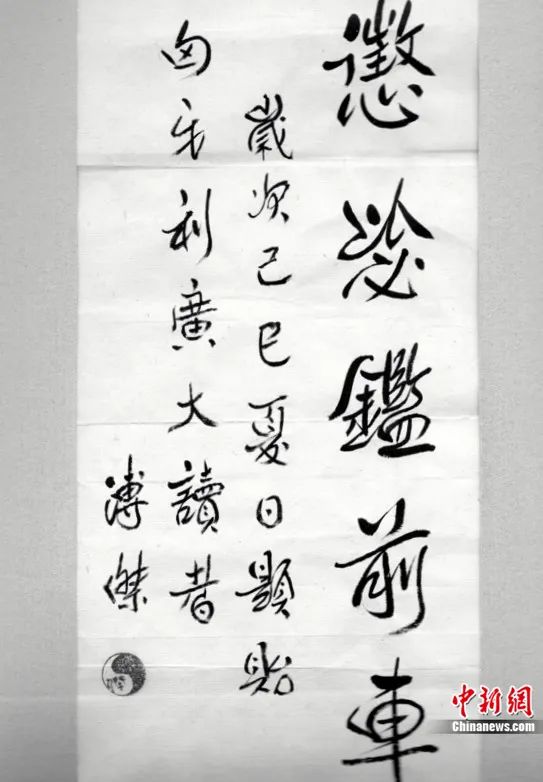 懲毖鑑前車
歲次己巳夏日題貽
匈牙利廣大讀者
溥傑
中新網
Chinanews.com